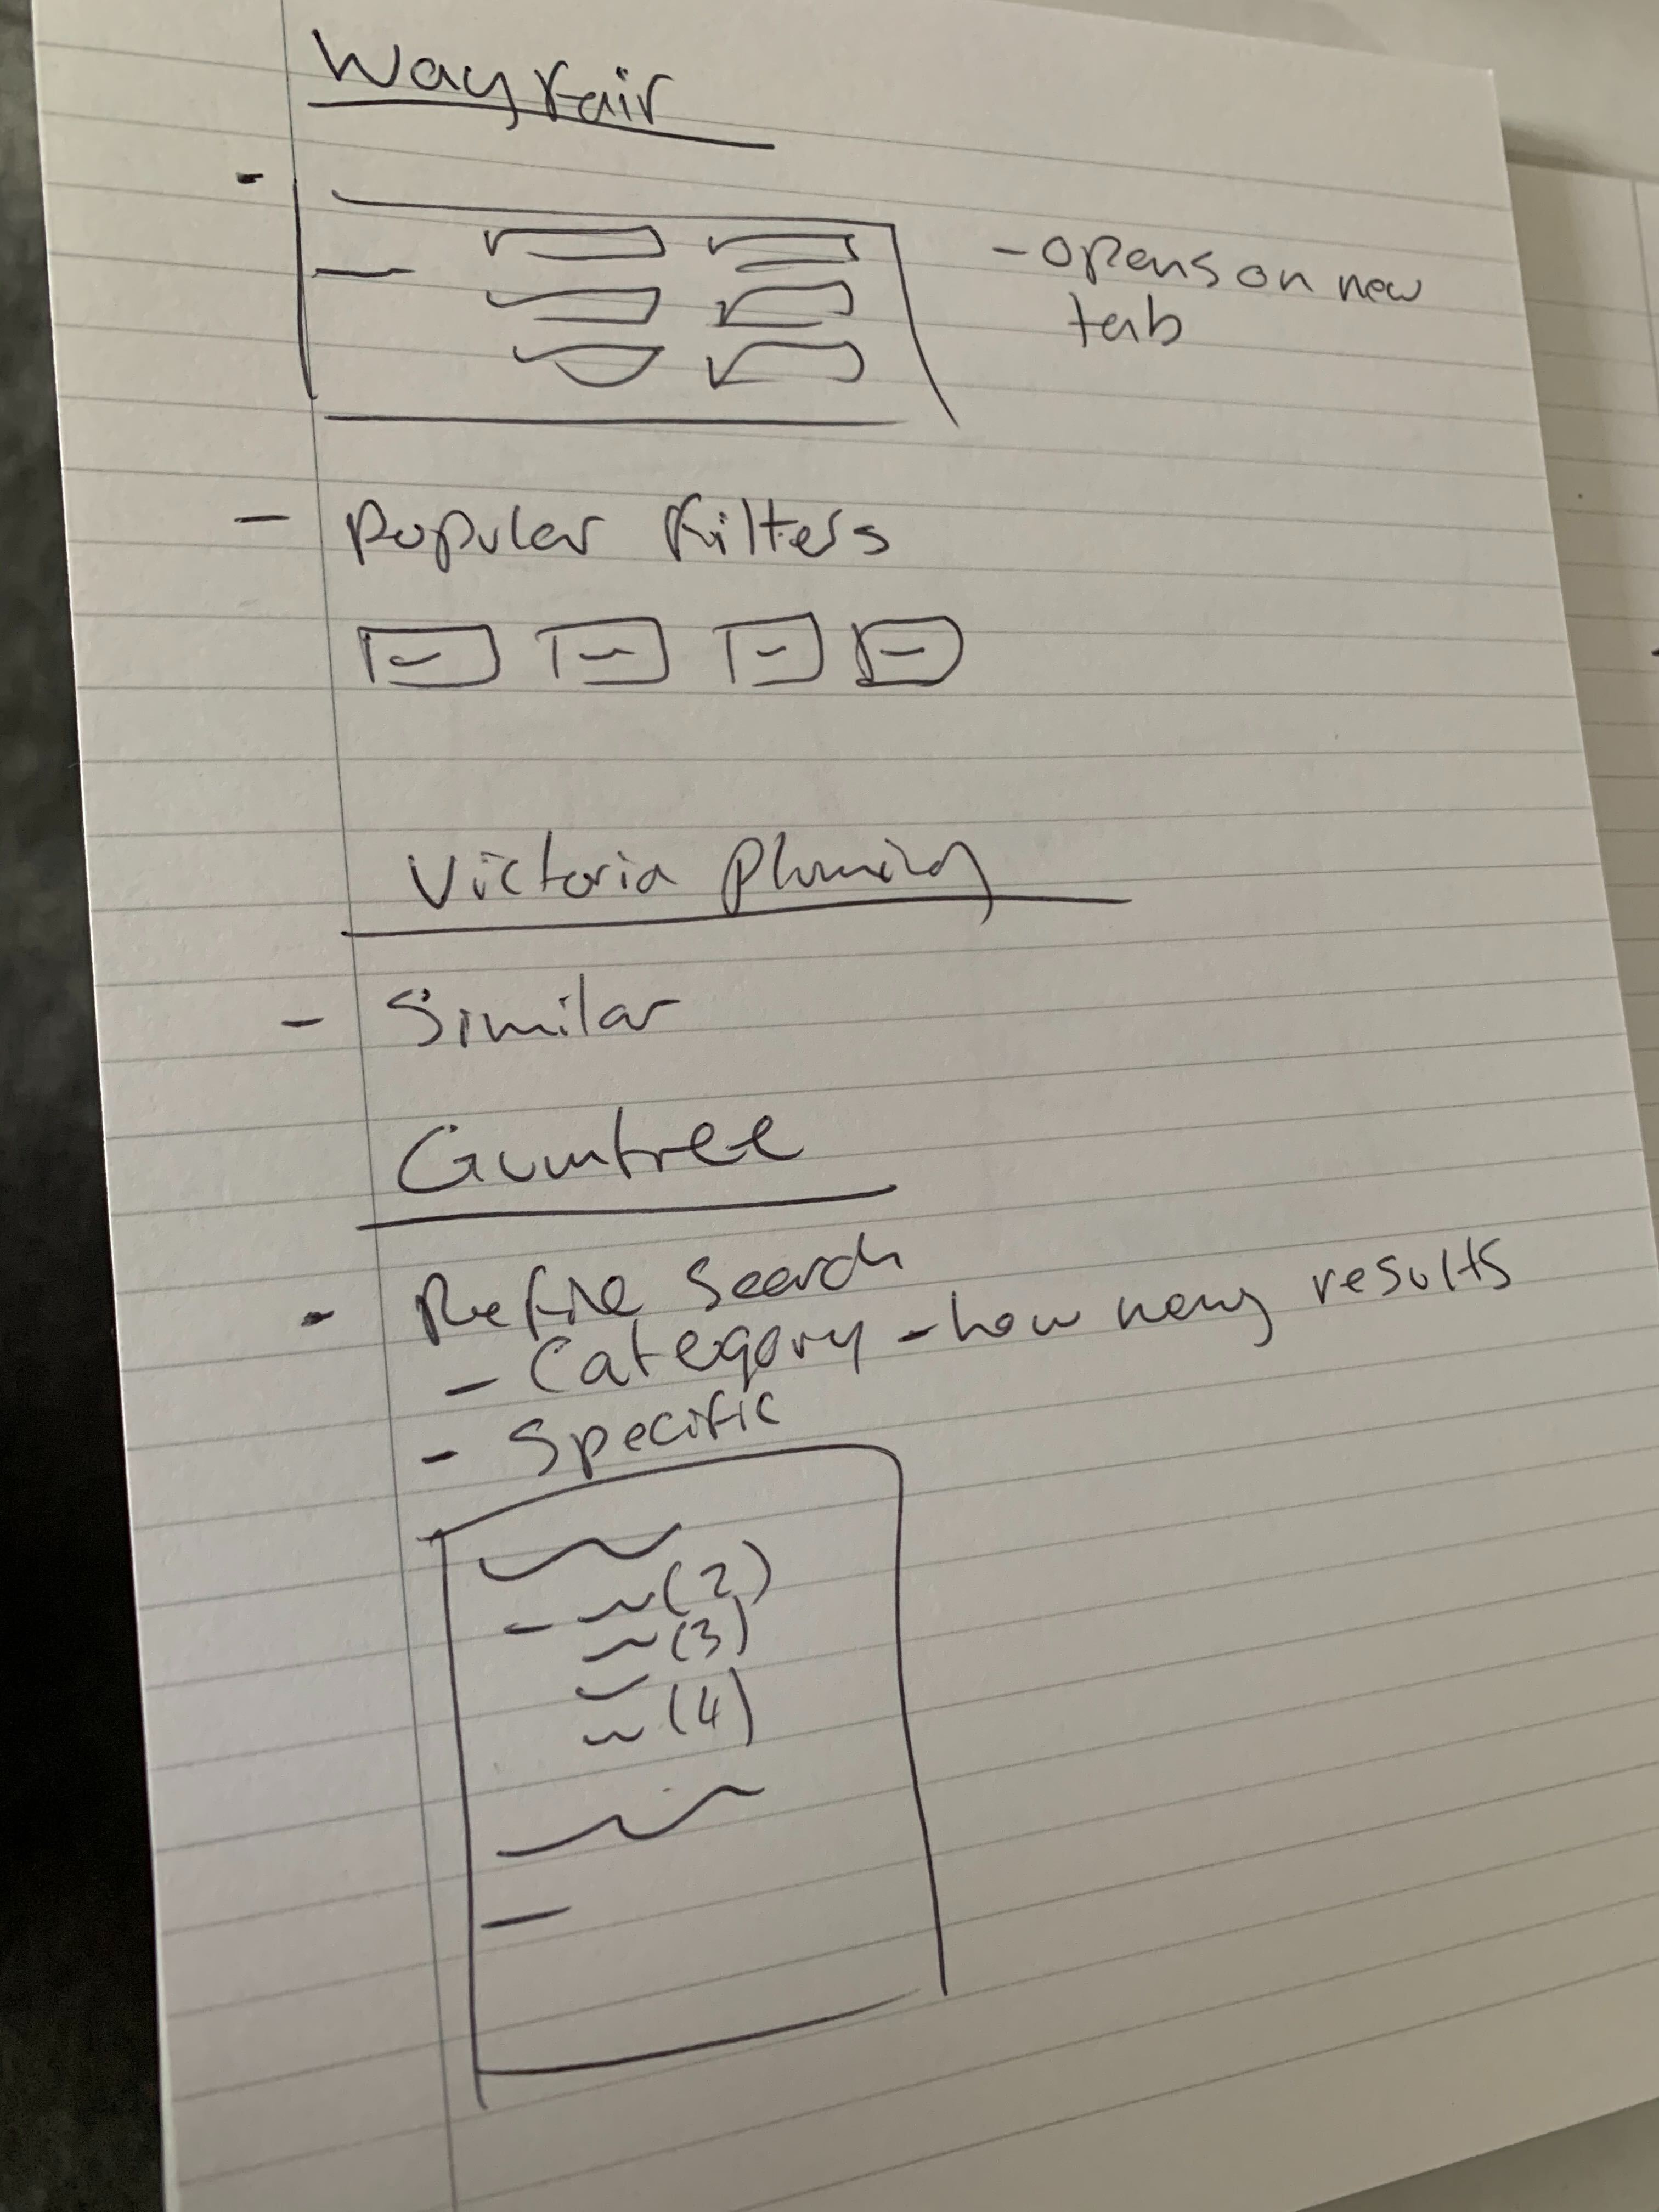 Wayfair
- opens on new
tab
- Popular filters
Victoria Pluming
- Similar
Gumtree
- Refine Search
- Category - how many results
- Specific
(2)
(3)
(4)